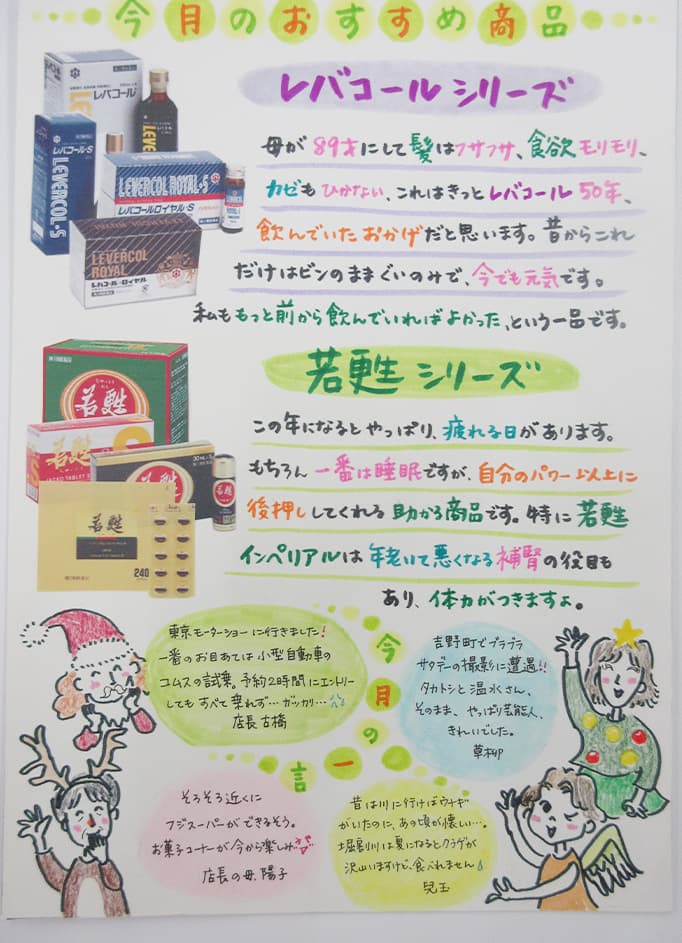 今月のおすすめ商品
レバコール シリーズ
母が89才にして髪はフサフサ、食欲モリモリ、
カゼもひかない、これはきっとレバコール50年、
飲んでいたおかげだと思います。昔からこれ
だけはビンのままぐいのみで、今でも元気です。
私ももっと前から飲んでいればよかった、という一品です。
レバコール
レバコール・S
LEVERCOL・S
LEVERCOL ROYAL・S
レバコールロイヤル・S
LEVERCOL
ROYAL
レバコール・ロイヤル
若甦 シリーズ
この年になるとやっぱり、疲れる日があります。
もちろん一番は睡眠ですが、自分のパワー以上に
後押ししてくれる助かる商品です。特に若甦
インペリアルは年老いて悪くなる補腎の役目も
あり、体力がつきますよ。
若甦
若甦
若甦
若甦
240
今月の一言
東京モーターショーに行きました!
一番のお目あては小型自動車の
コムスの試乗。予約2時間にエントリー
してもすべて乗れず…ガッカリ…
店長 古橋
吉野町でブラブラ
サタデーの撮影に遭遇!!
タカトシと温水さん、
そのまま、やっぱり芸能人、
きれいでした。
草柳
そろそろ近くに
フジスーパーができるそう。
お菓子コーナーが今から楽しみ
店長の母、陽子
昔は川に行けばウナギ
がいたのに、あの頃が懐しい…。
堀割川は夏になるとクラゲが
沢山いますけど、食べれません
児玉